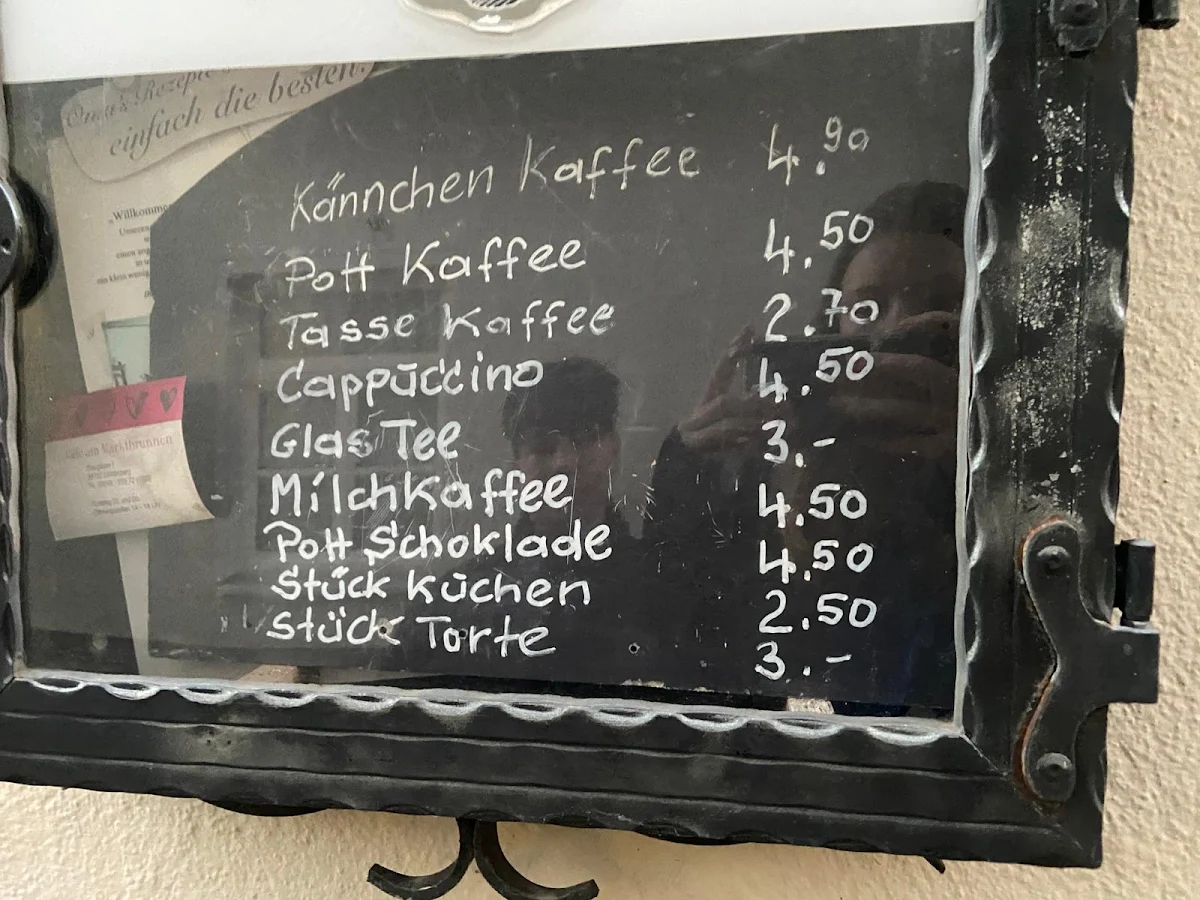 Oma's Rezepte
einfach die besten!
„Willkomme
Kännchen Kaffee 4.90
Pott Kaffee 4.50
Tasse Kaffee 2.70
Cappuccino 4.50
Glas Tee 3.-
Milchkaffee 4.50
Pott Schoklade 4.50
Stück Kuchen 2.50
Stück Torte 3.-
am Marktbrunnen